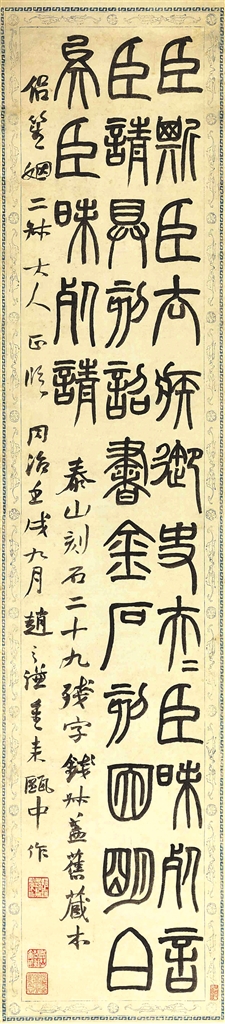 臣斯臣去疾御史夫〻臣昧死言
臣請具刻詔書金石刻因明白
矣臣昧死請 泰山刻石二十九殘字錢叔蓋舊藏本
侶笙姻二叔大人正 同治壬戌九月趙之謙重來甌中作